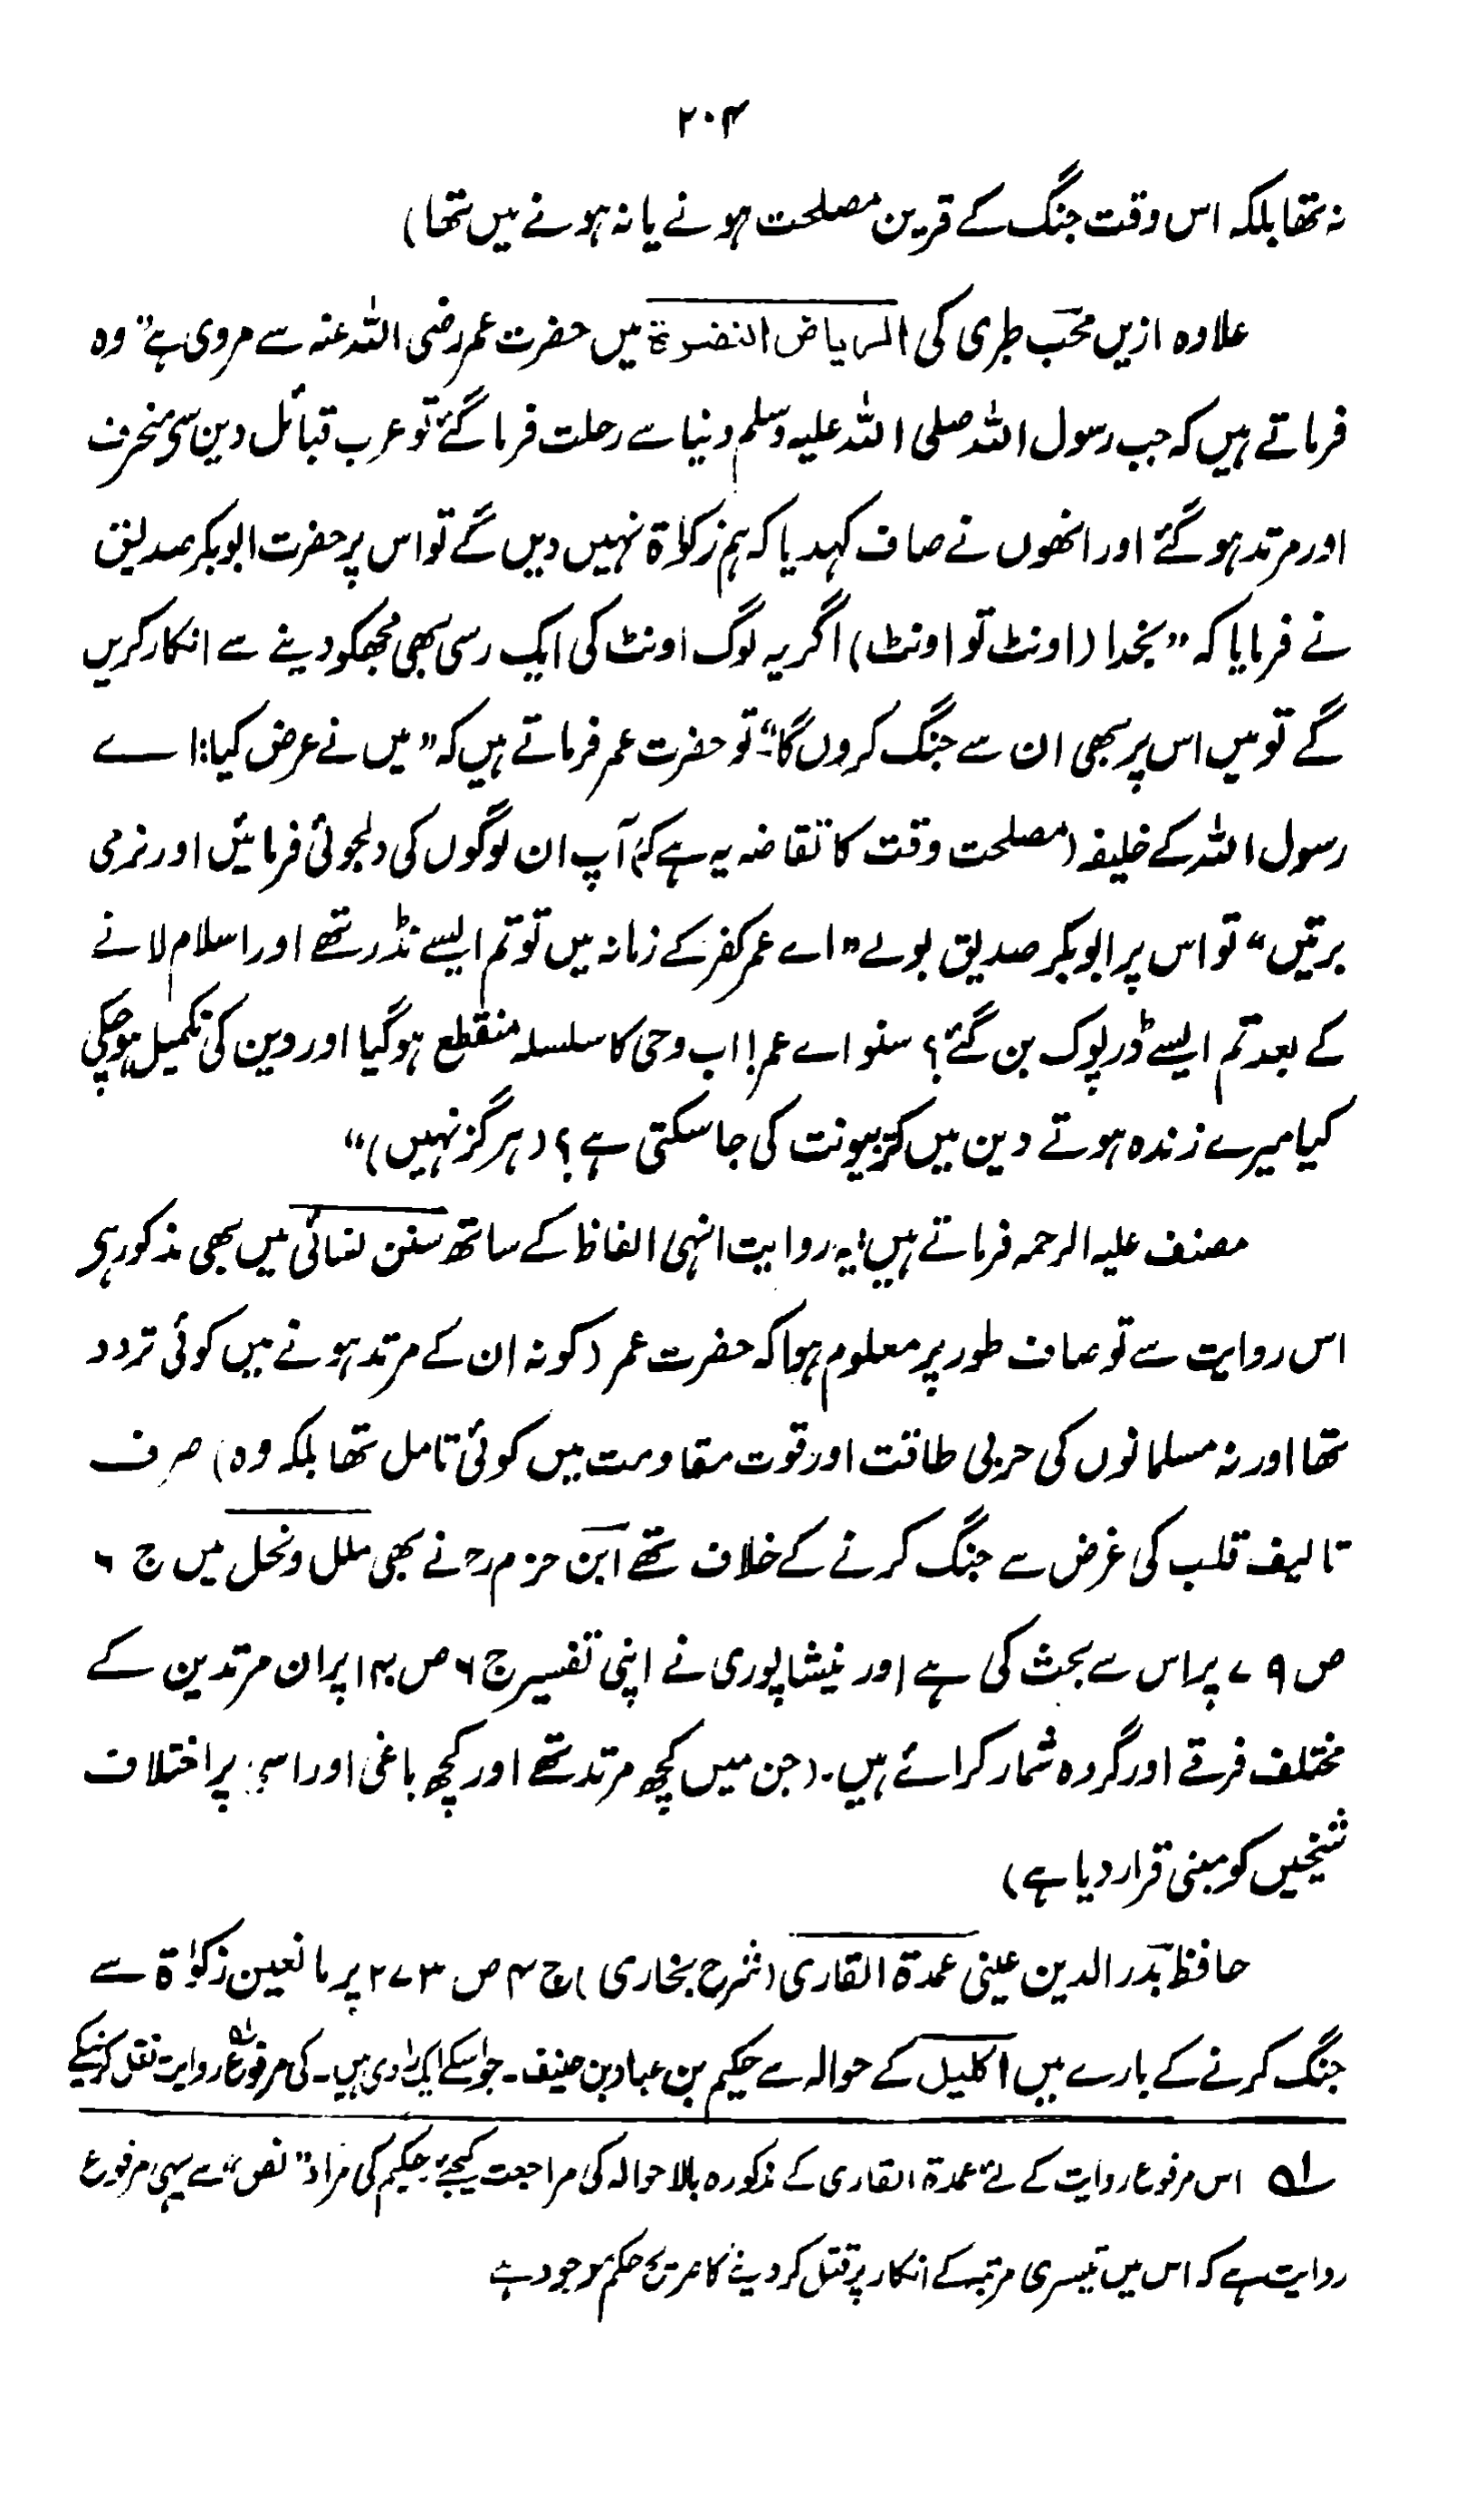 ۲۰۴
نہ تھا بلکہ اس وقت جنگ کے قرین مصلحت ہونے یا نہ ہونے میں تھا)
علاوہ ازیں محب طبری کی الریاض النضرۃ میں حضرت عمر رضی اللہ عنہ سے مروی ہے" وہ
فرماتے ہیں کہ جب رسول اللہ صلی اللہ علیہ وسلم دنیا سے رحلت فرما گئے تو عرب قبائل دین سے منحرف
اور مرتد ہو گئے اور انھوں نے صاف کہدیا کہ ہم زکوٰۃ نہیں دیں گے تو اس پر حضرت ابوبکر صدیق
نے فرمایا کہ "بخدا (اونٹ تو اونٹ) اگر یہ لوگ اونٹ کی ایک رسی بھی مجھکو دینے سے انکار کریں
گے تو میں اس پر بھی ان سے جنگ کروں گا"۔ تو حضرت عمر فرماتے ہیں کہ "میں نے عرض کیا: اے
رسول اللہ کے خلیفہ (مصلحت وقت کا تقاضہ یہ ہے کہ) آپ ان لوگوں کی دلجوئی فرمائیں اور نرمی
برتیں" تو اس پر ابوبکر صدیق بولے "اے عمر کفر کے زمانہ میں تو تم ایسے نڈر تھے اور اسلام لانے
کے بعد تم ایسے ڈرپوک بن گئے؟ سنو اے عمر! اب وحی کا سلسلہ منقطع ہو گیا اور دین کی تکمیل ہو چکی
کیا میرے زندہ ہوتے دین میں کتربیونت کی جا سکتی ہے؟ (ہرگز نہیں)"
مصنف علیہ الرحمہ فرماتے ہیں: یہ روایت انہی الفاظ کے ساتھ سنن نسائی میں بھی مذکور ہے
اس روایت سے تو صاف طور پر معلوم ہوا کہ حضرت عمر (کو نہ ان کے مرتد ہونے میں کوئی تردد
تھا اور نہ مسلمانوں کی حربی طاقت اور قوت مقاومت میں کوئی تامل تھا بلکہ وہ) صرف
تالیف قلب کی غرض سے جنگ کرنے کے خلاف تھے ابن حزم رح نے بھی ملل ونحل میں ج ۶
ص ۷۹ پر اس سے بحث کی ہے اور نیشاپوری نے اپنی تفسیر ج ۶ ص ۱۴۰ پر ان مرتدین کے
مختلف فرقے اور گروہ شمار کرائے ہیں۔ (جن میں کچھ مرتد تھے اور کچھ باغی اور اسی پر اختلاف
شیخین کو مبنی قرار دیا ہے)
حافظ بدر الدین عینی عمدۃ القاری (شرح بخاری) ج ۴ ص ۲۷۳ پر مانعین زکوٰۃ سے
جنگ کرنے کے بارے میں اکلیل کے حوالہ سے حکیم بن عباد بن حنیف۔ جو اسکے ایک راوی ہیں۔ کی مرفوع لہ روایت نقل کرنیکے
لہ اس مرفوع روایت کے لئے عمدۃ القاری کے مذکورہ بالا حوالہ کی مراجعت کیجئے، حکیم کی مراد "نص" سے یہی مرفوع
روایت ہے کہ اس میں تیسری مرتبہ کے انکار پر قتل کر دینے کا صریح حکم موجود ہے